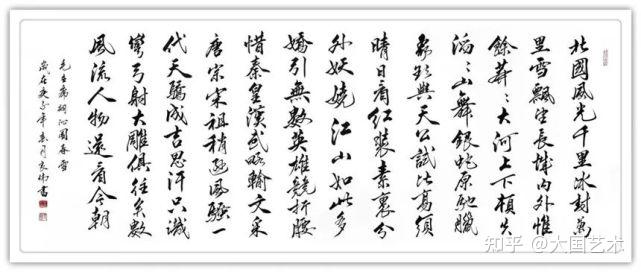 北國風光千里冰封萬
里雪飄望長城内外惟
餘莽〻大河上下頓失
滔〻山舞銀蛇原馳臘
象欲與天公試比高須
晴日看紅裝素裹分
外妖嬈江山如此多
嬌引無數英雄競折腰
惜秦皇漢武略輸文采
唐宗宋祖稍遜風騷一
代天驕成吉思汗只識
彎弓射大雕俱往矣數
風流人物還看今朝
毛主席詞沁園春雪
歲在庚子年春月書
知乎 @大国艺术